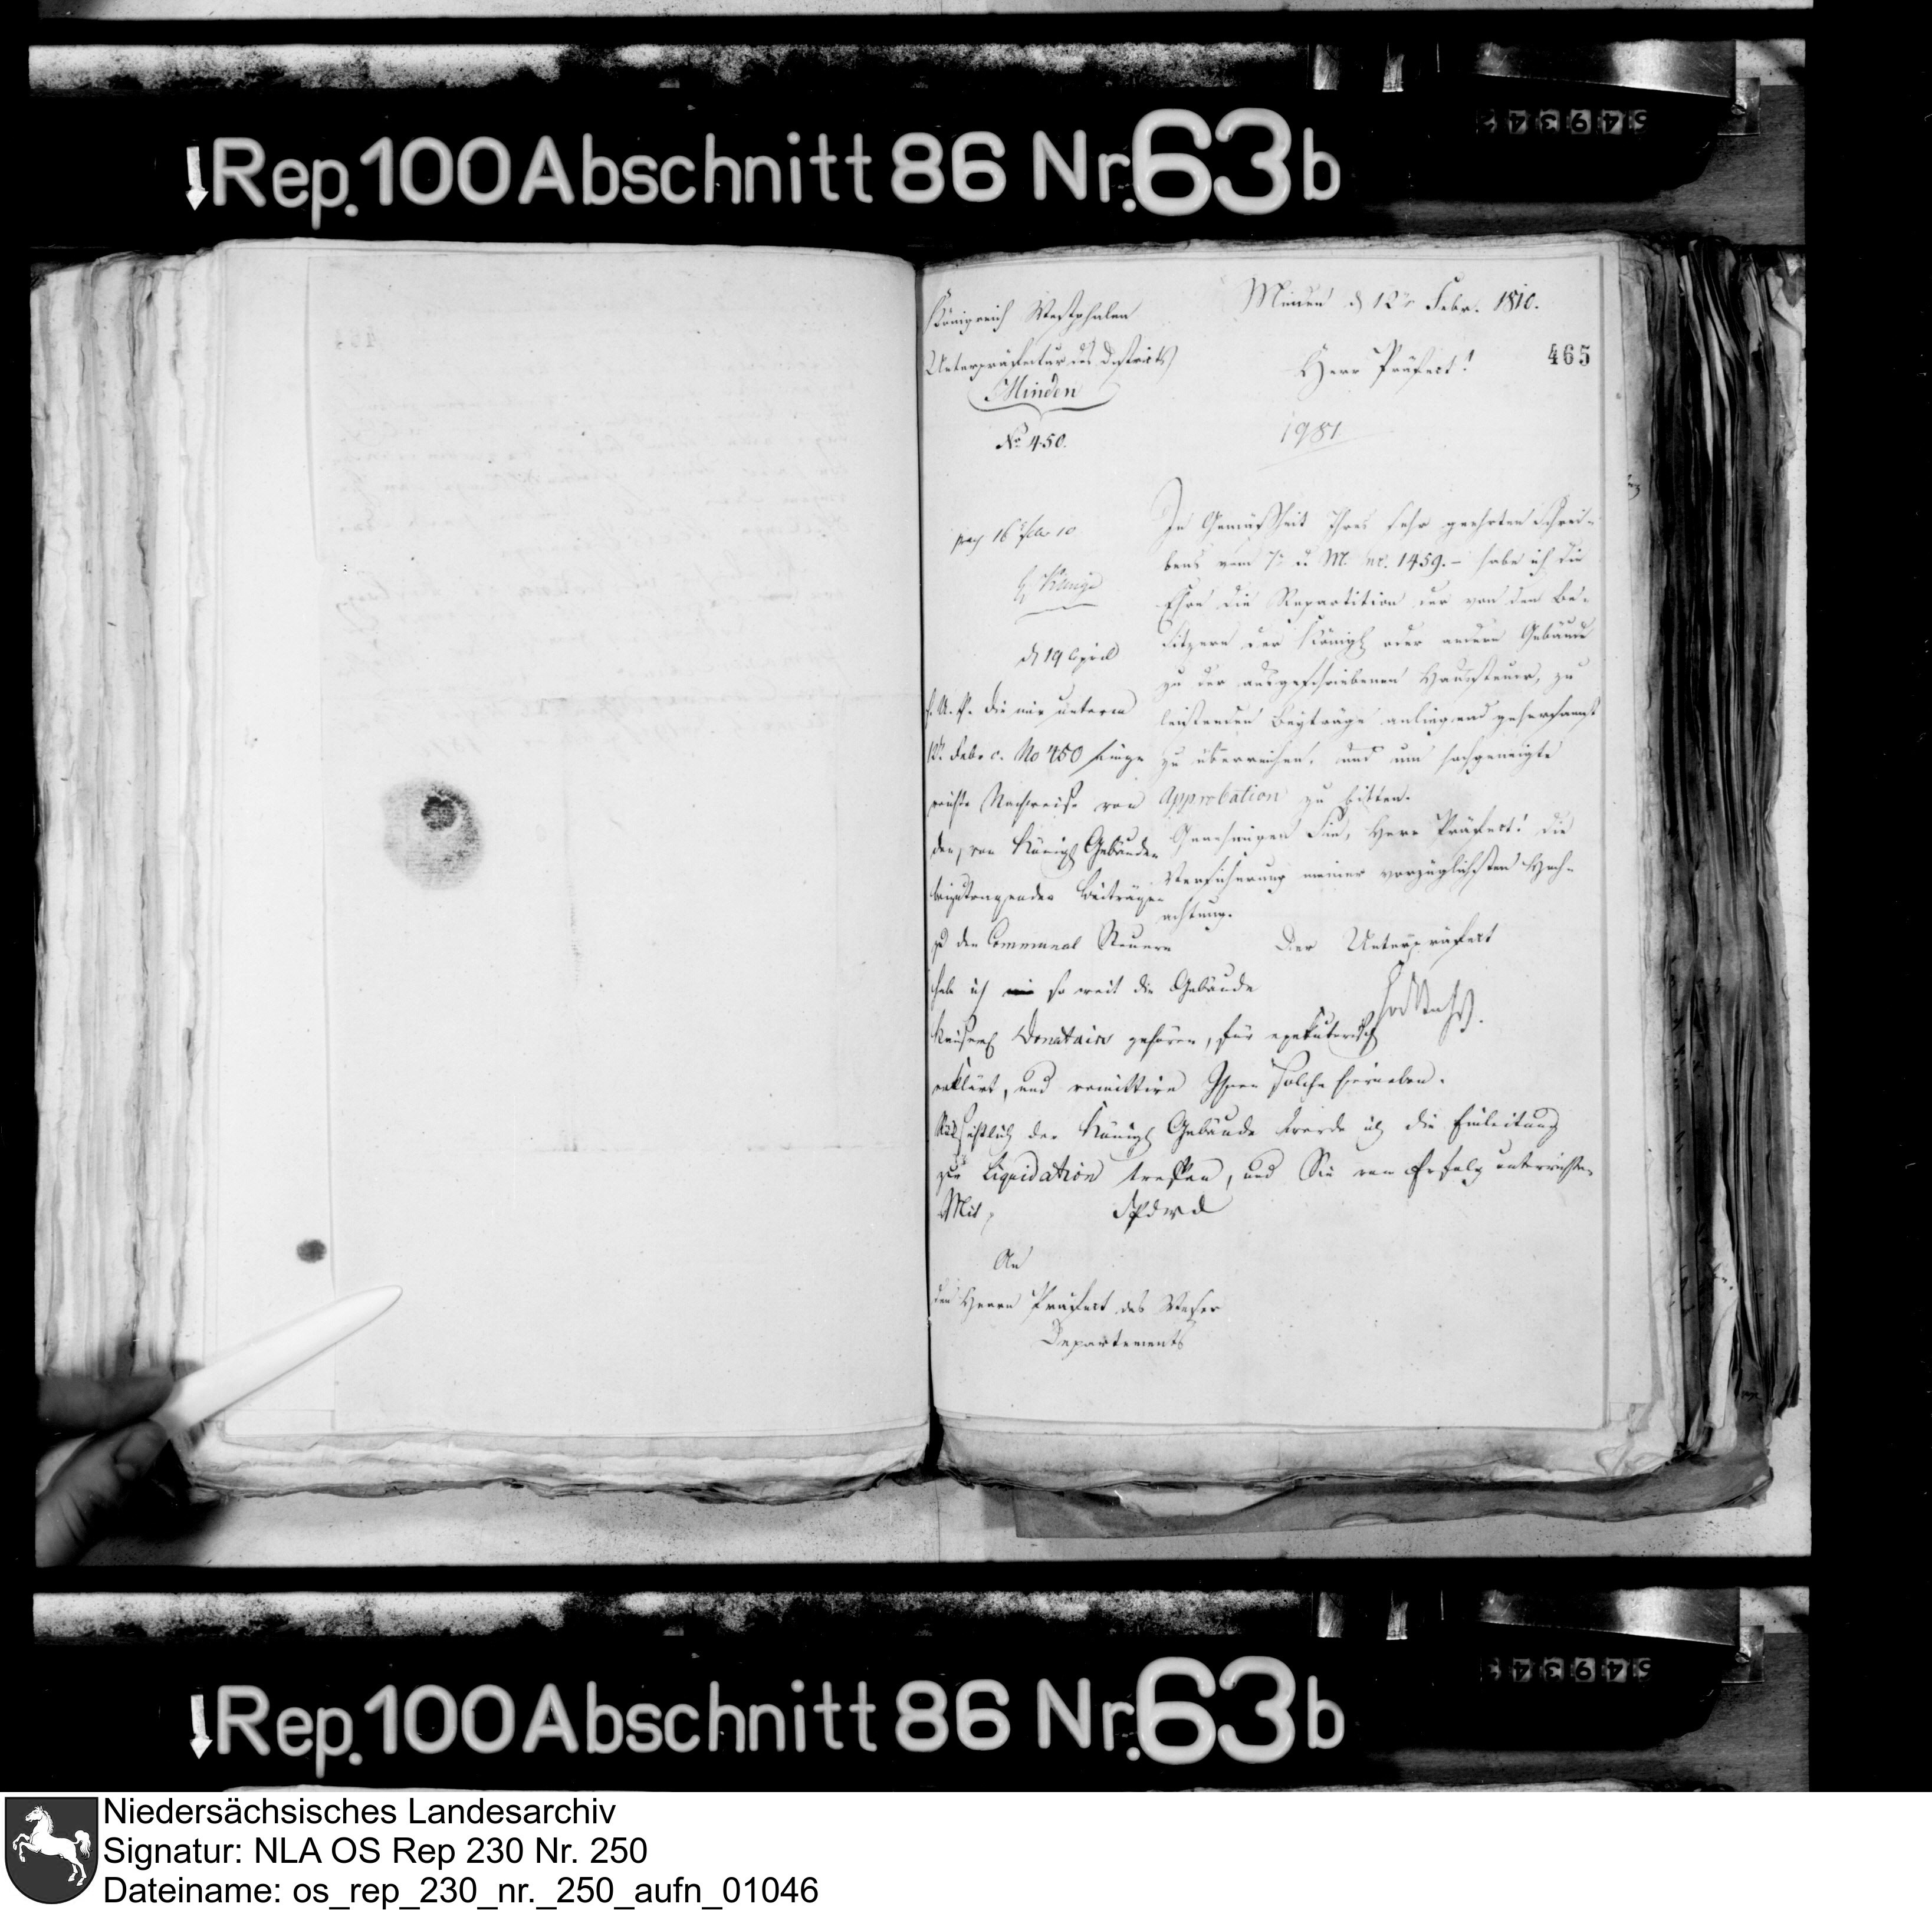 Rep. 100 Abschnitt 86 Nr. 63 b
Königreich Westphalen
Unterpräfectur des Districts
Minden
No 450.
Minden d 12ten Febr. 1810.
465
Herr Präfect!
1981
In Gemäßheit Ihres sehr geehrten Schrei-
bens vom d. M. nr. 1459. – habe ich die
Ehre die Repartition der von den Be-
sitzern der Königl oder andern Gebäude
zu der ausgeschriebenen Haussteuer, zu
leistenden Beyträge anliegend gehorsamst
zu überreichen, und um hochgeneigte
Approbation zu bitten.
Genehmigen Sie, Herr Präfect! die
Versicherung meiner vorzüglichsten Hoch-
achtung.
Der Unterpräfect
d 19 April
die mir unterm
12t. Febr c. No 450 einge
reichte Nachweise von
den, von Königl Gebäuden
Beiträgen
zu den Communal Steuern
habe ich so weit die Gebäude
Kaiserl Donatairs gehören, für exekutorisch
erklärt, und remittire Ihnen solche hierneben.
der Königl Gebäude werde ich die Einleitung
zur Liquidation treffen, und Sie vom Erfolg unterrichten
Mit
An
den Herrn Präfect des Weser
Departements
Rep. 100 Abschnitt 86 Nr. 63 b
Niedersächsisches Landesarchiv
Signatur: NLA OS Rep 230 Nr. 250
Dateiname: os_rep_230_nr._250_aufn_01046